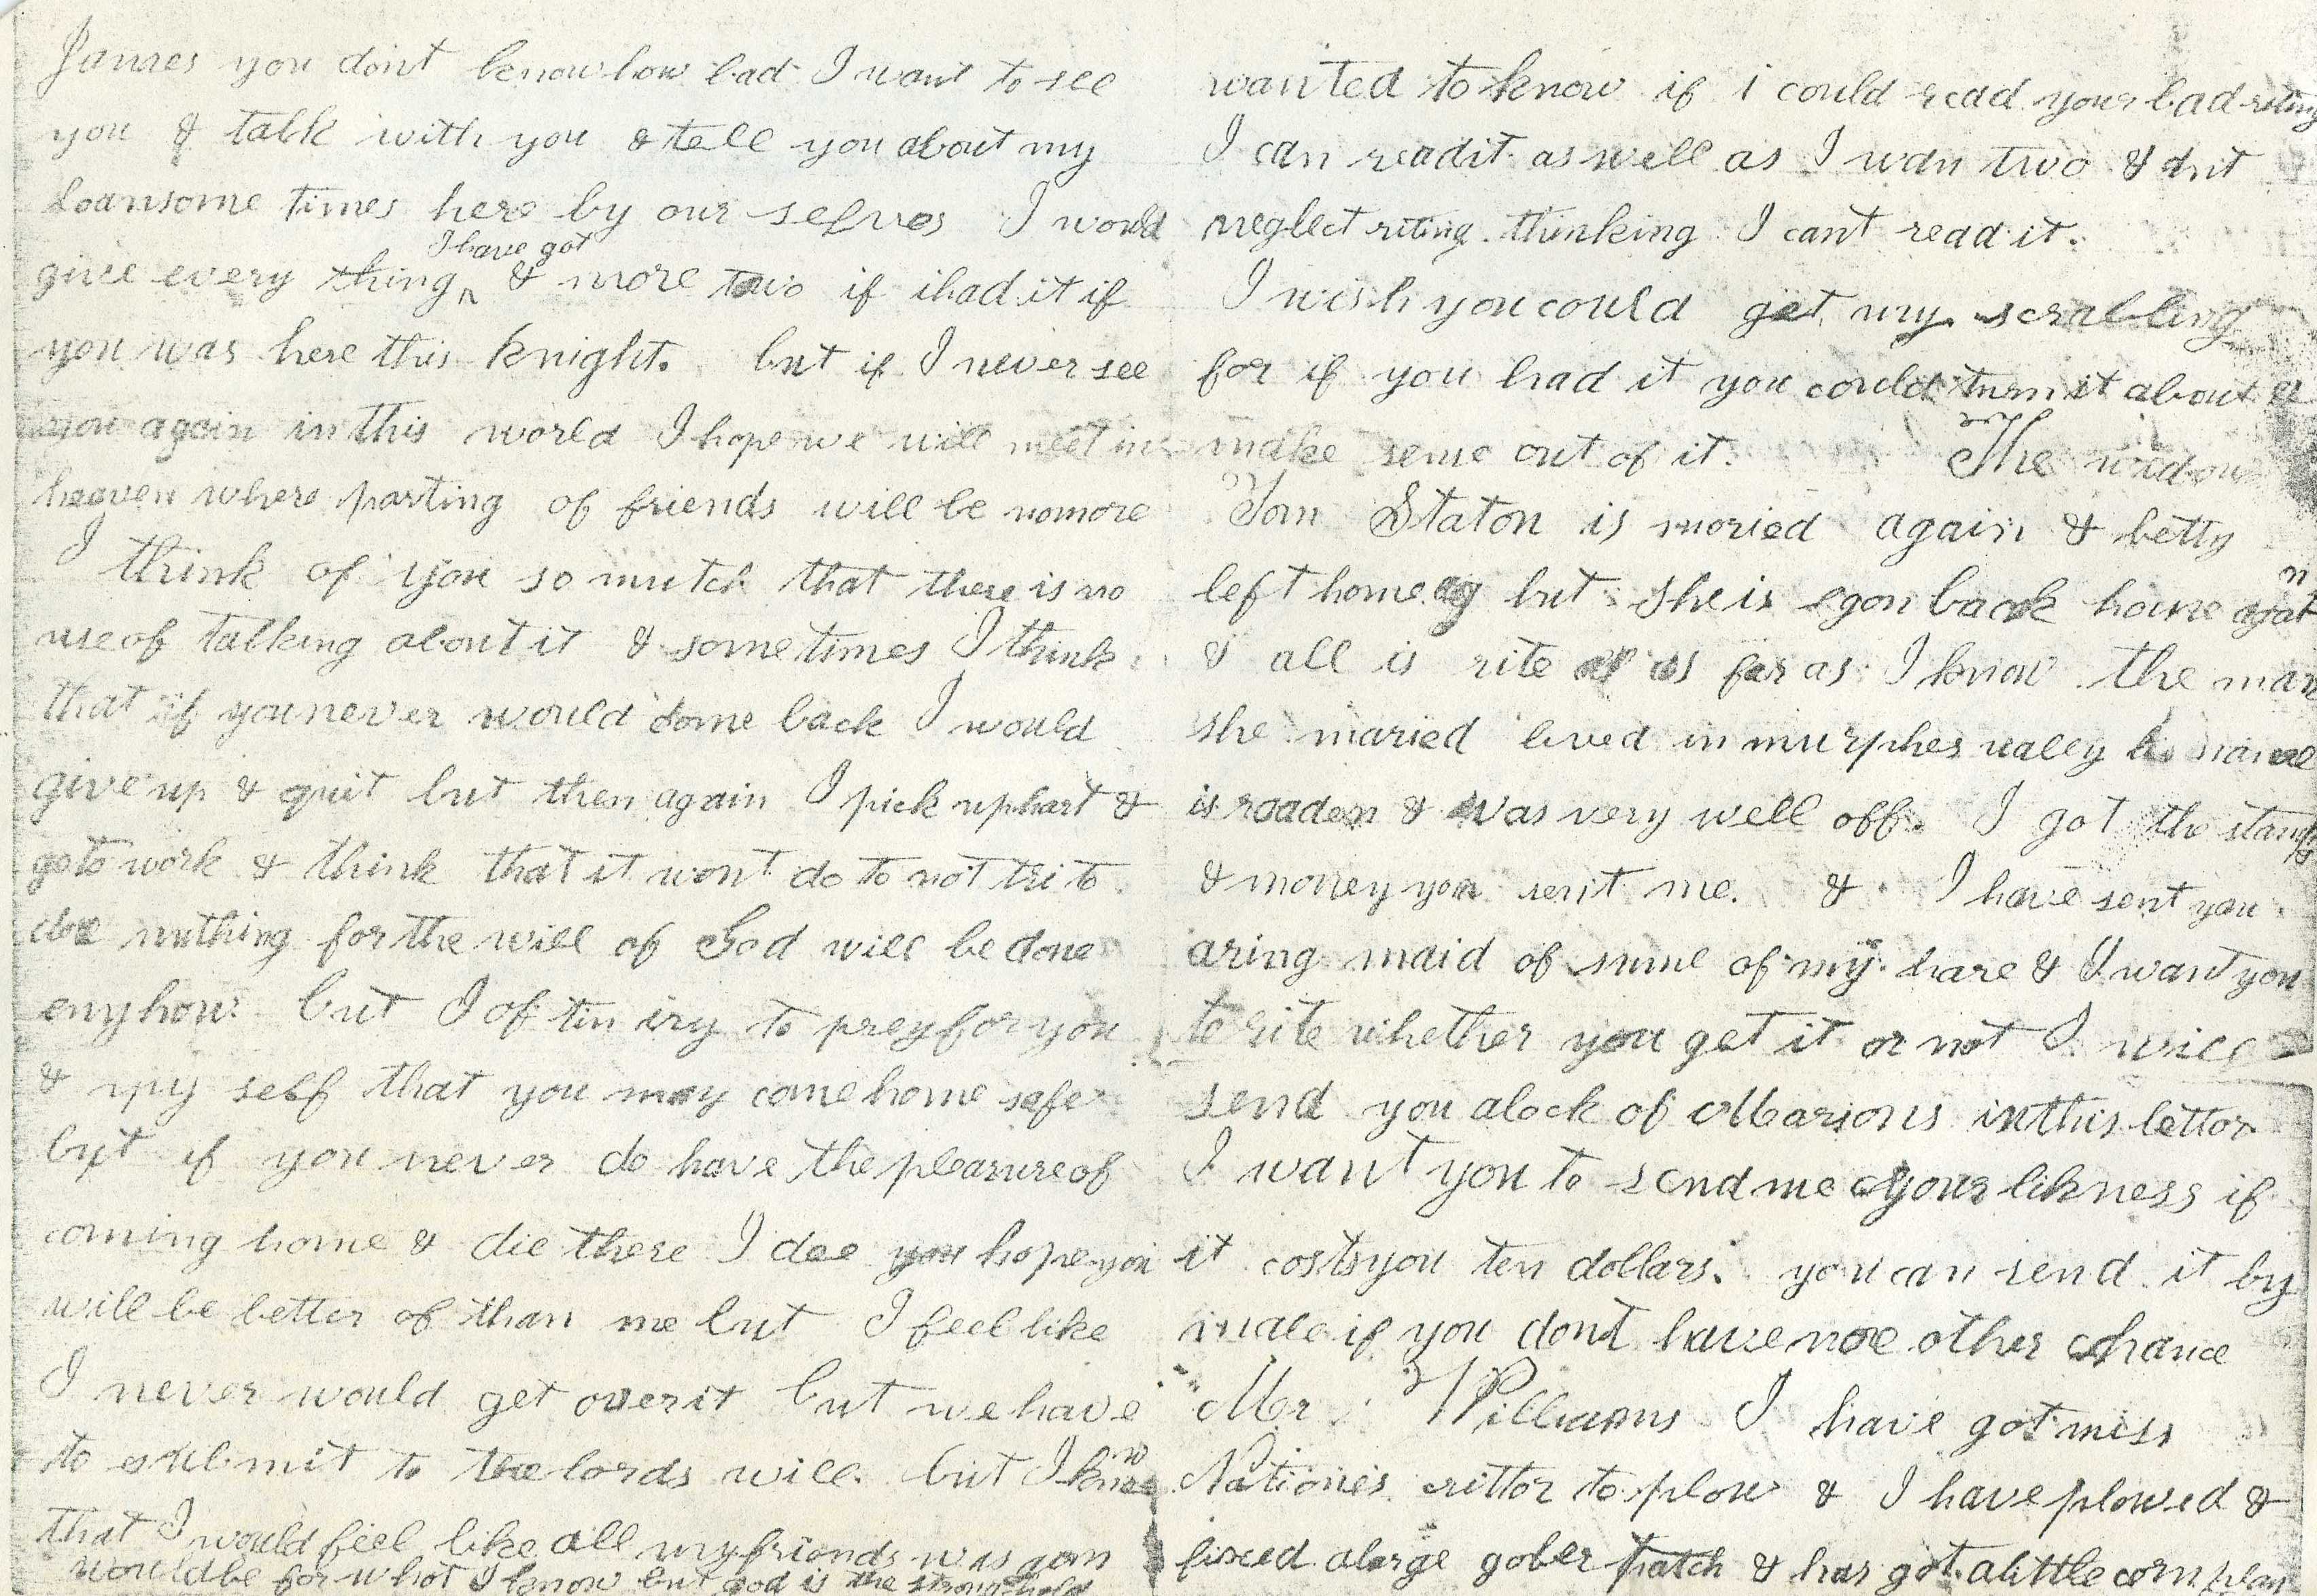 James you dont know how bad I want to see
you & talk with you & tell you about my
Loansome times here by our selves I would
I have got
give every thing & more two if ihad it if
you was here this knight. but if I never see
you again in this world I hope we will meet in
heaven where parting of friends will be nomore
I think of you so mutch that there is no
use of talking about it & some times I think
that if you never would come back I would
give up & quit but then again I pick up hart &
go to work & think that it wont do to not tri to
doe nuthing for the will of God will be done
eny how but I of tin try to prey for you
& my self that you may come home safe
but if you never do have the pleasure of
coming home & die there I doe you hope you
will be better of than me but I feel like
I never would get over it but we have
to submit to the lords will. but I know
that I would feel like all my friends was gon
would be for what I know but god is the strong hold
wanted to know if i could read your bad riting
I can read it as well as I wan two & dnt
neglect riting thinking I cant read it.
I wish you could get my scrabling
for if you had it you could turn it about &
make sense out of it. The widow
Tom Staton is moried again & betty
left home but she is gon back home again
& all is rite as far as I know the man
she maried lived in murphes valey his name
is roaden & was very well off. I got the stamps
& money you sent me. & I have sent you
aring maid of sume of my hare & I want you
to rite whether you get it or not I will
send you alock of Marions in this letter
I want you to send me your likness if
it costs you ten dollars. you can send it by
male if you dont have noe other chance
Mr Williams I have got miss
Nationes crittor to plow & I have plowed &
fixed alarge gober patch & has got alittle corn plan